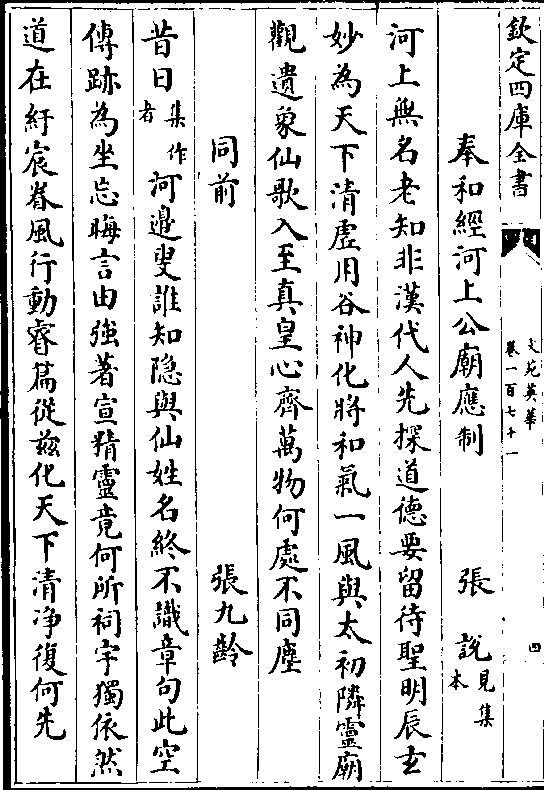 欽定四庫全書
文苑英華
卷一百七十一
四
奉和經河上公廟應制 張說見集本
河上無名老知非漢代人先探道德要留待聖明辰玄
妙為天下清虛用谷神化將和氣一風與太初隣靈廟
觀遺象仙歌入至真皇心齊萬物何處不同塵
同前 張九齡
昔日集作者河邊叟誰知隐與仙姓名終不識章句此空
傳跡為坐忘晦言由強著宣精靈竟何所祠宇獨依然
道在紆宸眷風行動睿篇從兹化天下清净復何先